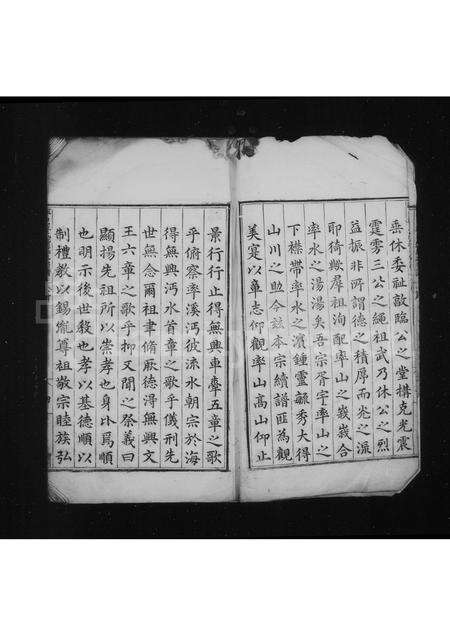 垂休委祉敨臨公之堂構克光震
霆雾三公之繩祖武乃休公之烈
益振非所謂德之積厚而光之派
耶猗歟羣祖洵配率山之峩峩合
率水之湯湯矣吾宗胥宇率山之
下襟帶率水之濵鍾靈毓秀大得
山川之助今兹本宗續譜匪為觀
美寔以單志仰觀率山高山仰止
景行行止得無興車舝五章之歌
乎俯察率溪沔彼流水朝宗於海
得無興沔水首章之歌乎儀刑先
世無念爾祖聿脩厥德得無興文
王六章之歌乎抑又聞之祭義曰
顯揚先祖所以崇孝也身比爲順
也明示後世教也孝以基德順以
制禮教以錫胤尊祖敬宗睦族弘